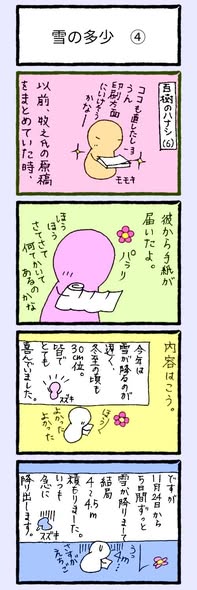 雪の多少 ④
百樹のハナシ(6)
ココも直したしョ
うん
印刷方面
にいけそう
かなー
モモキ
以前、牧之氏の原稿
をまとめていた時、
彼から手紙が
届いたよ。
パラリ
ほうほう
さてさて
何てかいて
あるのかな
内容はこう。
今年は
雪が降るのが
遅く、
冬至の頃も
30cm位。
皆で
とても
喜んでいました。
スズキ
ほうほう
よかった
よかった
ですが
11月24日から
5日間ずっと
雪が降りまして
結局
4~4.5m
積もりました。
いつも
急に
降り出します。
スズキ
うっ
4m…
さすが
えちご